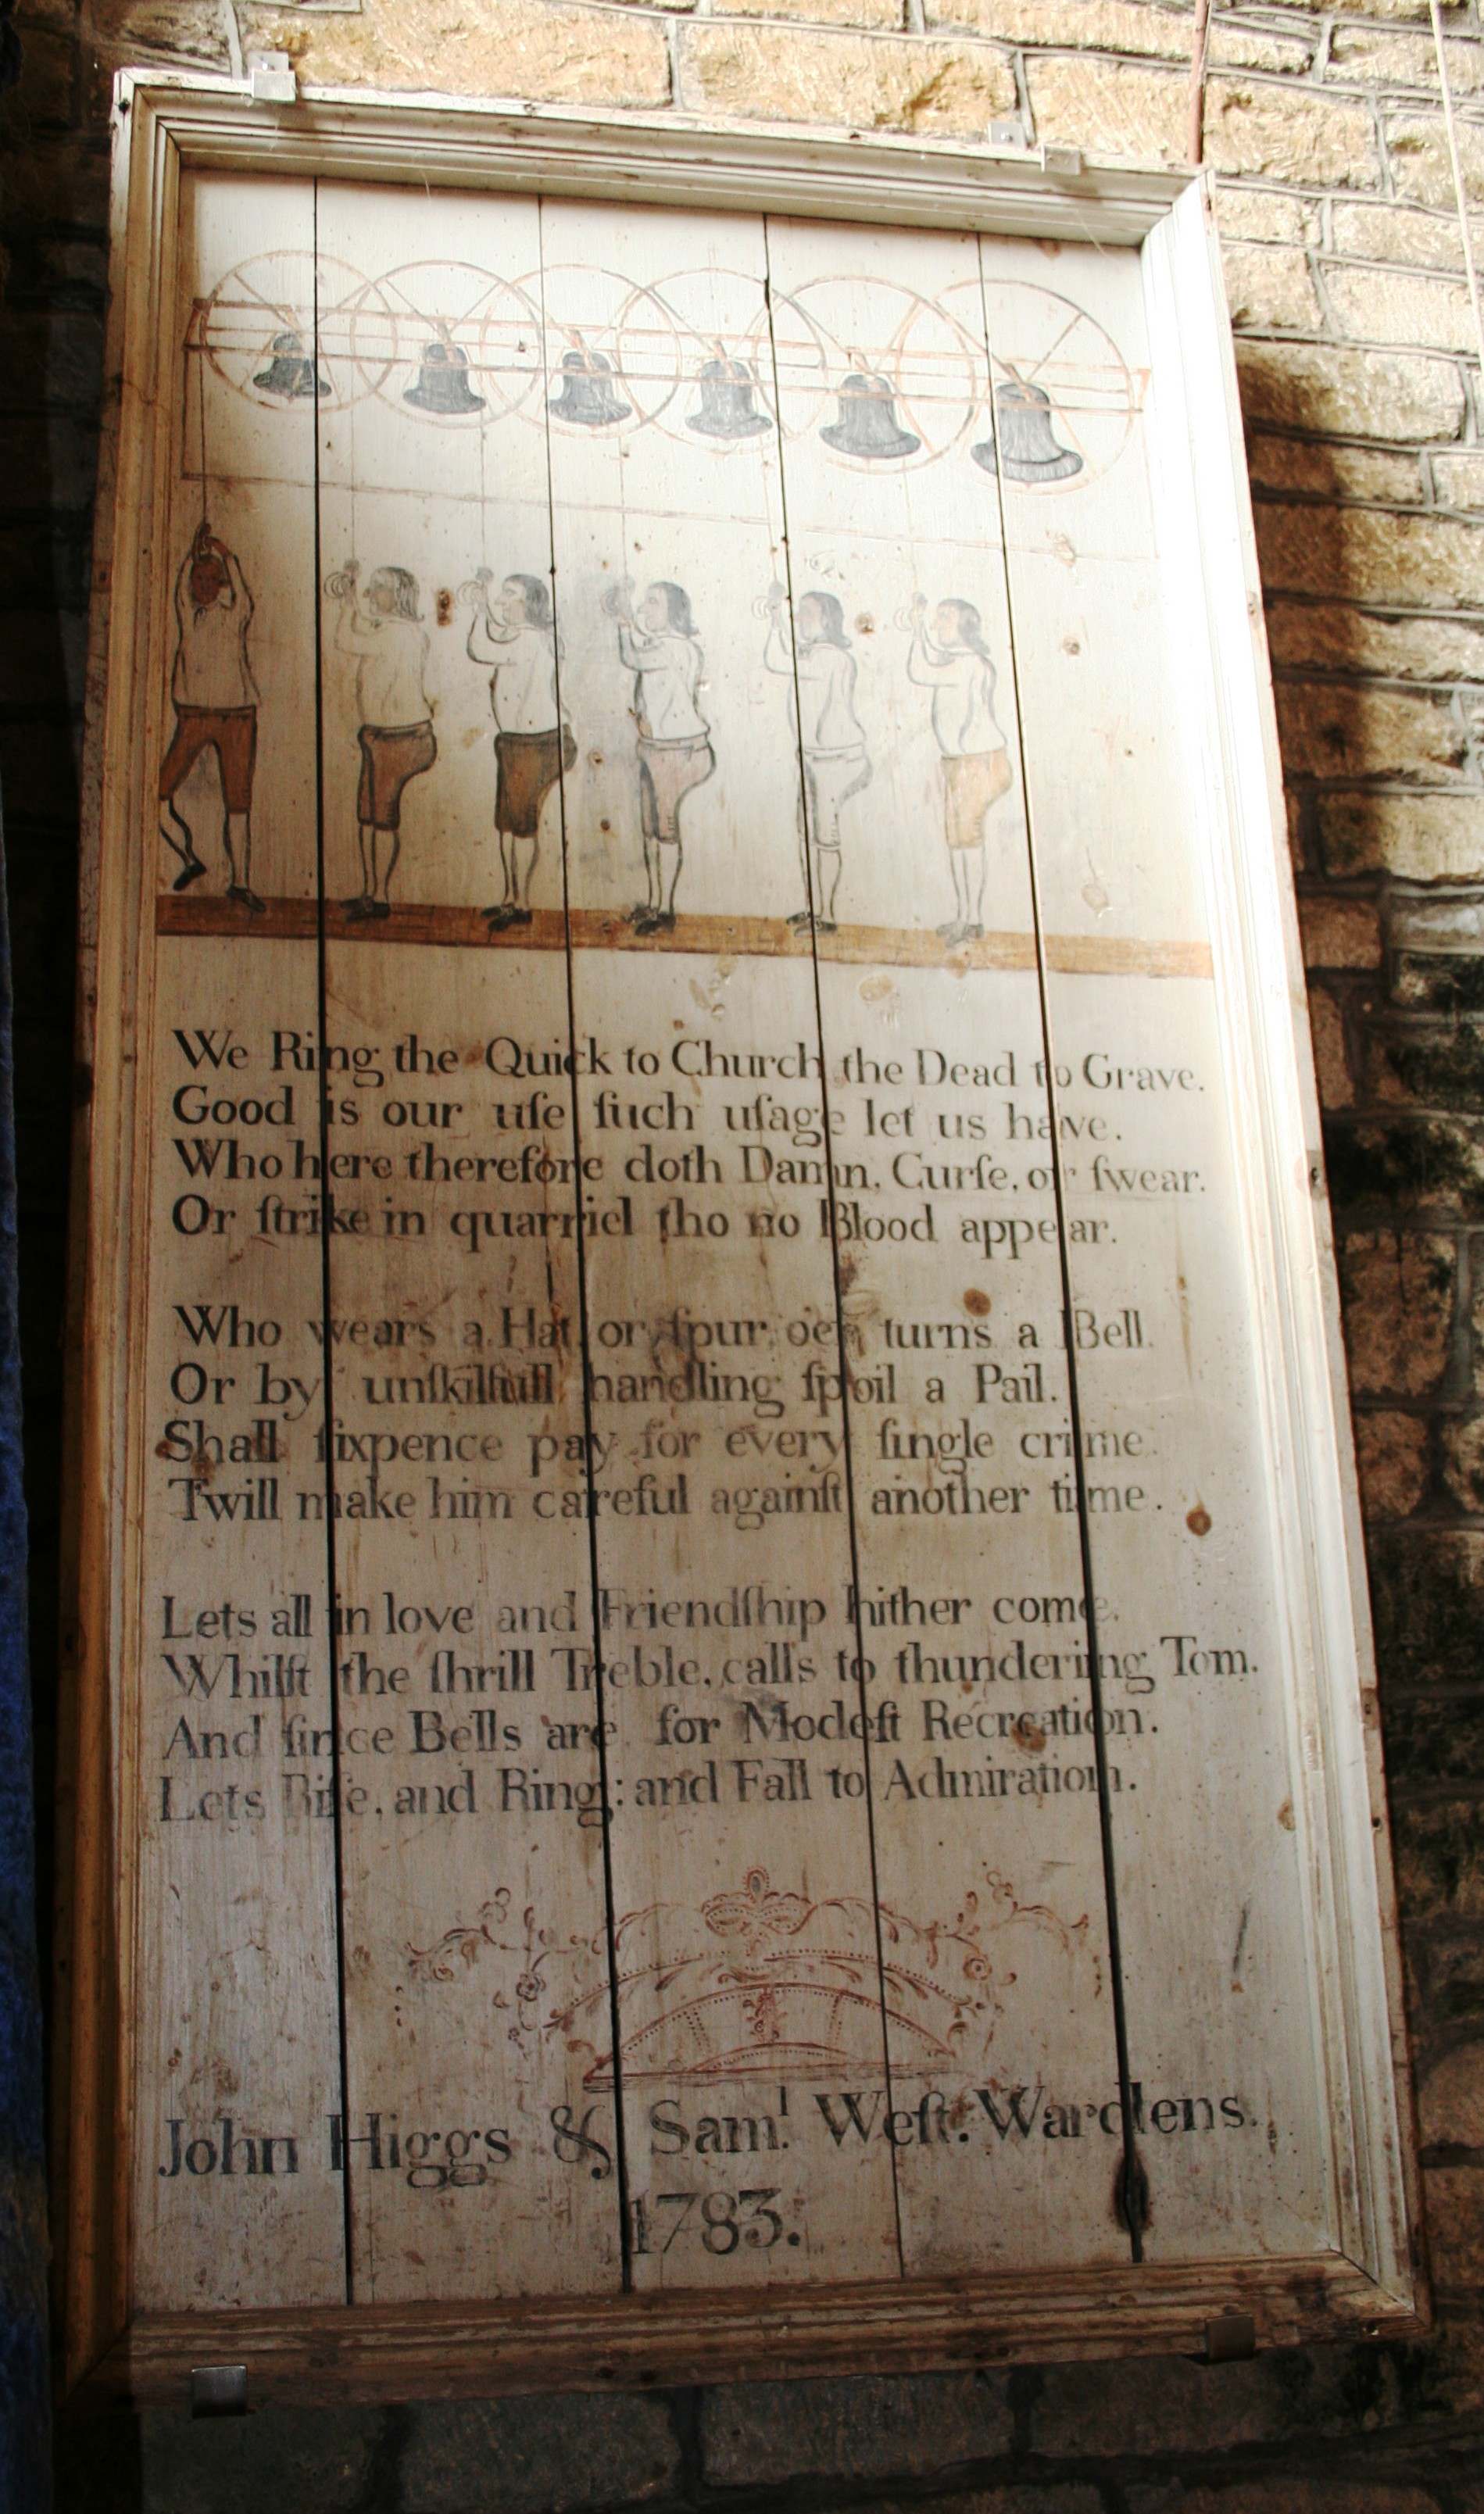 We Ring the Quick to Church the Dead to Grave.
Good is our uſe ſuch uſage let us have.
Who here therefore doth Damn, Curſe, or ſwear.
Or ſtrike in quarriel tho no Blood appear.
Who wears a Hat or ſpur, oer turns a Bell.
Or by unſkilfull handling ſpoil a Pail.
Shall ſixpence pay for every ſingle crime.
Twill make him careful againſt another time.
Lets all in love and Friendſhip hither come.
Whilſt the ſhrill Treble, calls to thundering Tom.
And ſince Bells are for Modeſt Recreation.
Lets Riſe, and Ring: and Fall to Admiration.
John Higgs & Sam.l Weſt. Wardens.
1783.